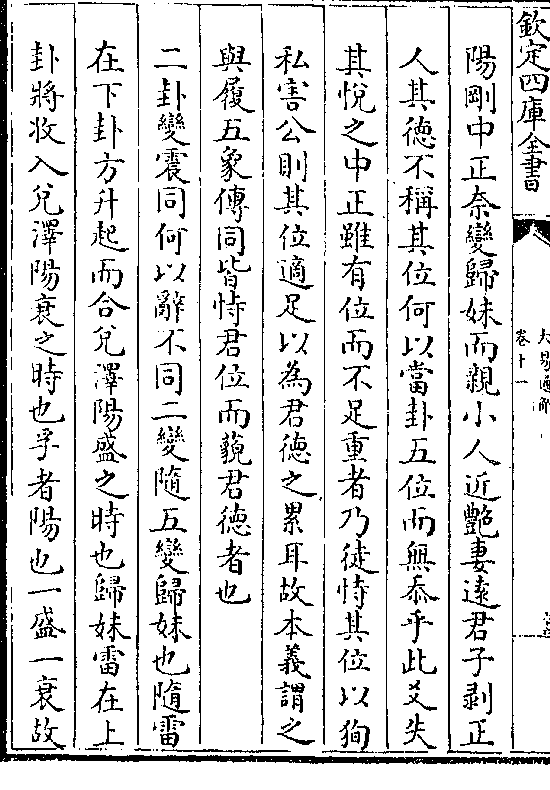 欽定四庫全書
大易通解
卷十一
陽剛中正奈變歸妹而親小人近艶妻逺君子剥正
人其徳不稱其位何以當卦五位而無忝乎此爻失
其悦之中正雖有位而不足重者乃徒恃其位以狥
私害公則其位適足以為君徳之累耳故本義謂之
與履五象傳同皆恃君位而藐君徳者也
二卦變震同何以辭不同二變隨五變歸妹也隨雷
在下卦方升起而合兌澤陽盛之時也歸妹雷在上
卦將收入兌澤陽衰之時也孚者陽也一盛一衰故